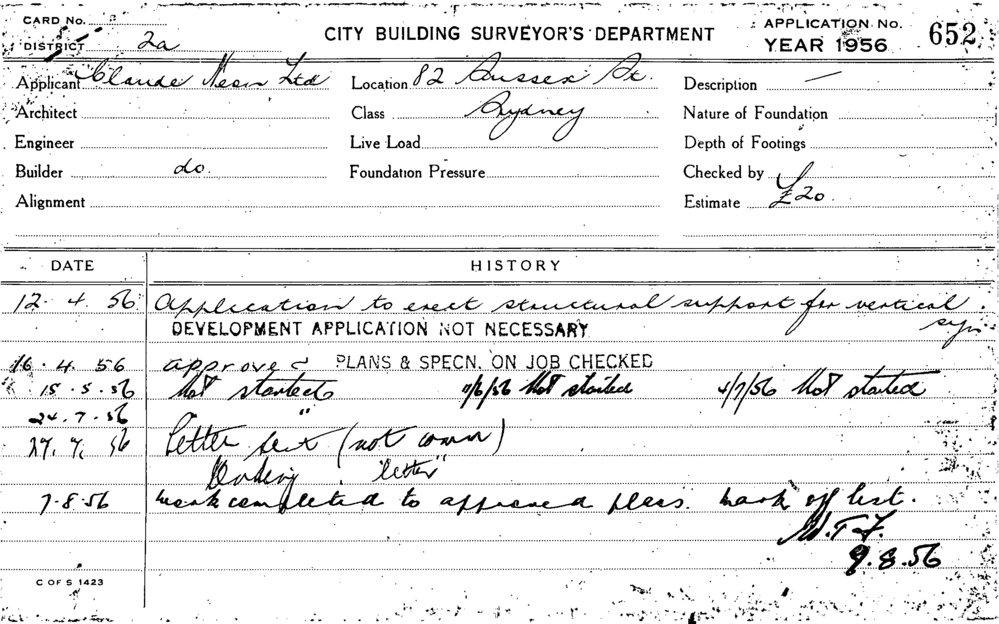 CARD No.
DISTRICT 2a
CITY BUILDING SURVEYOR'S DEPARTMENT
APPLICATION No.
YEAR 1956
652
Applicant Claude Neon Ltd
Location 82 Sussex St.
Description —
Architect
Class Sydney
Nature of Foundation
Engineer
Live Load
Depth of Footings
Builder do.
Foundation Pressure
Checked by
Alignment
Estimate £20
DATE HISTORY
12.4.56 Application to erect structural support for vertical
sign
DEVELOPMENT APPLICATION NOT NECESSARY
16.4.56 approved PLANS & SPECN. ON JOB CHECKED
15.5.56 Not started 11/6/56 Not started 4/7/56 Not started
24.7.56 "
27.7.56 Letter sent (not comm)
"letter"
7.8.56 work completed to approved plans. mark off list.
W.T.F.
9.8.56
C OF S 1423